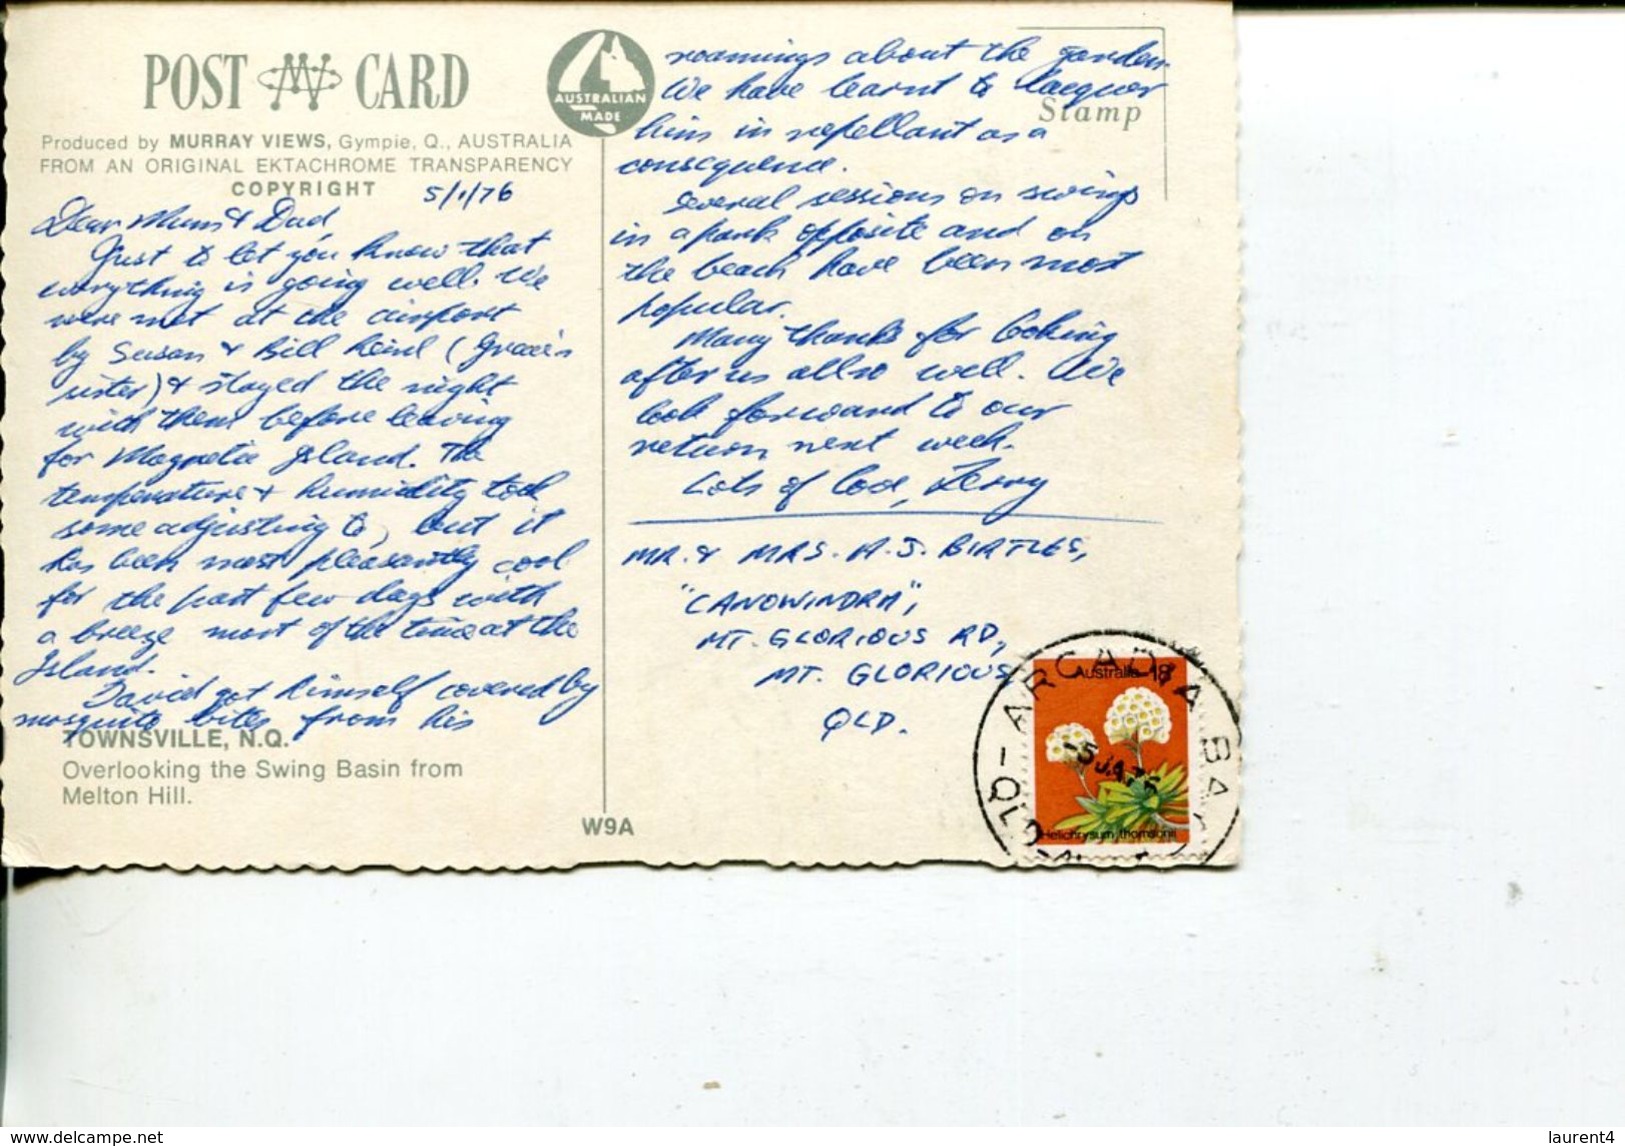 POST CARD
AUSTRALIAN
MADE
Produced by MURRAY VIEWS, Gympie, Q., AUSTRALIA
FROM AN ORIGINAL EKTACHROME TRANSPARENCY
COPYRIGHT
5/1/76
Dear Mum & Dad,
Just to let you know that
everything is going well. We
were met at the airport
by Susan & Bill (Gracie's
sister) & stayed the night
with them before leaving
for Magnetic Island. The
temperature & humidity took
some adjusting to, but it
has been most pleasantly cool
for the past few days with
a breeze most of the time at the
Island.
David got himself covered by
mosquito bites from his
TOWNSVILLE, N.Q.
Overlooking the Swing Basin from
Melton Hill.
W9A
roamings about the garden.
We have learnt to lacquer
Stamp
him in repellant as a
consequence.
Several sessions on swings
in a park opposite and on
the beach have been most
popular.
Many thanks for looking
after us all so well. We
look forward to our
return next week.
Lots of love,
MR. & MRS. A. J. BIRTLES,
"CANOWINDRA",
MT. GLORIOUS RD,
MT. GLORIOUS
QLD.
ARCADIA BAY
QLD
Australia 18
-5 JA 76
Helichrysum thomsonii
www.delcampe.net
laurent4